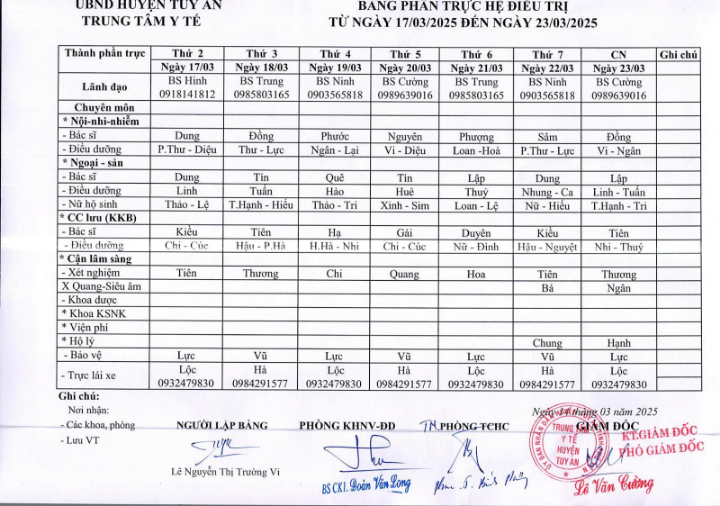 UBND HUYỆN TUY AN
TRUNG TÂM Y TẾ
BẢNG PHÂN TRỰC HỆ ĐIỀU TRỊ
TỪ NGÀY 17/03/2025 ĐẾN NGÀY 23/03/2025
Thành phần trực Thứ 2 Thứ 3 Thứ 4 Thứ 5 Thứ 6 Thứ 7 CN Ghi chú
Ngày 17/03 Ngày 18/03 Ngày 19/03 Ngày 20/03 Ngày 21/03 Ngày 22/03 Ngày 23/03
Lãnh đạo BS Hinh BS Trung BS Ninh BS Cường BS Trung BS Ninh BS Cường
0918141812 0985803165 0903565818 0989639016 0985803165 0903565818 0989639016
Chuyên môn
* Nội-nhi-nhiễm
- Bác sĩ Dung Đồng Phước Nguyên Phượng Sâm Đồng
- Điều dưỡng P.Thư - Diệu Thư - Lực Ngân - Lại Vi - Diệu Loan -Hoà P.Thư - Lực Vi - Ngân
* Ngoại - sản
- Bác sĩ Dung Tín Quê Tín Lập Dung Lập
- Điều dưỡng Linh Tuấn Hảo Huê Thuỷ Nhung - Ca Linh - Tuấn
- Nữ hộ sinh Thảo - Lệ T.Hạnh - Hiếu Thảo - Tri Xinh - Sim Loan - Lệ Nữ - Hiếu T.Hạnh - Tri
* CC lưu (KKB)
- Bác sĩ Kiều Tiên Hạ Gái Duyên Kiều Tiên
- Điều dưỡng Chi - Cúc Hậu - P.Hà H.Hà - Nhi Chi - Cúc Nữ - Định Hậu - Nguyệt Nhi - Thuý
* Cận lâm sàng
- Xét nghiệm Tiên Thương Chi Quang Hoa Tiên Thương
X Quang-Siêu âm Bá Ngân
- Khoa dược
* Khoa KSNK
* Viện phí
* Hộ lý Chung Hạnh
- Bảo vệ Lực Vũ Lực Vũ Lực Vũ Lực
- Trực lái xe Lộc Hà Lộc Hà Lộc Hà Lộc
0932479830 0984291577 0932479830 0984291577 0932479830 0984291577 0932479830
Ghi chú:
Nơi nhận:
- Các khoa, phòng
- Lưu VT
Ngày 14 tháng 03 năm 2025
NGƯỜI LẬP BẢNG PHÒNG KHNV-ĐD TM PHÒNG TCHC GIÁM ĐỐC
KT.GIÁM ĐỐC
PHÓ GIÁM ĐỐC
TRUNG TÂM
Y TẾ
HUYỆN
TUY AN
Lê Nguyễn Thị Trường Vi
BS CKI. Đoàn Văn Long
Lê Văn Cường